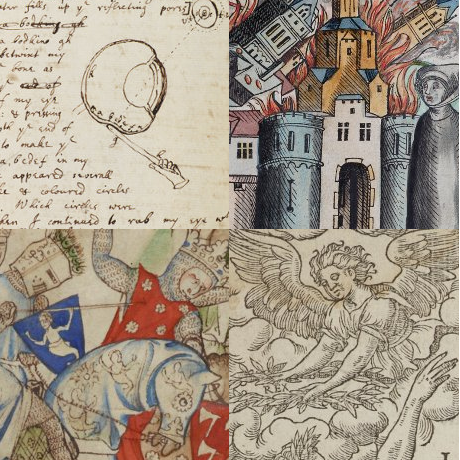 fills up ye reflecting pores]
a bodkine gh
betwixt my
bone as
end of
of my eye
& pressing
ye end of
to make ye
a,b,c,d,e,f in my
appeared severall
& coloured circles
Which circles were
I continued to rub my eye